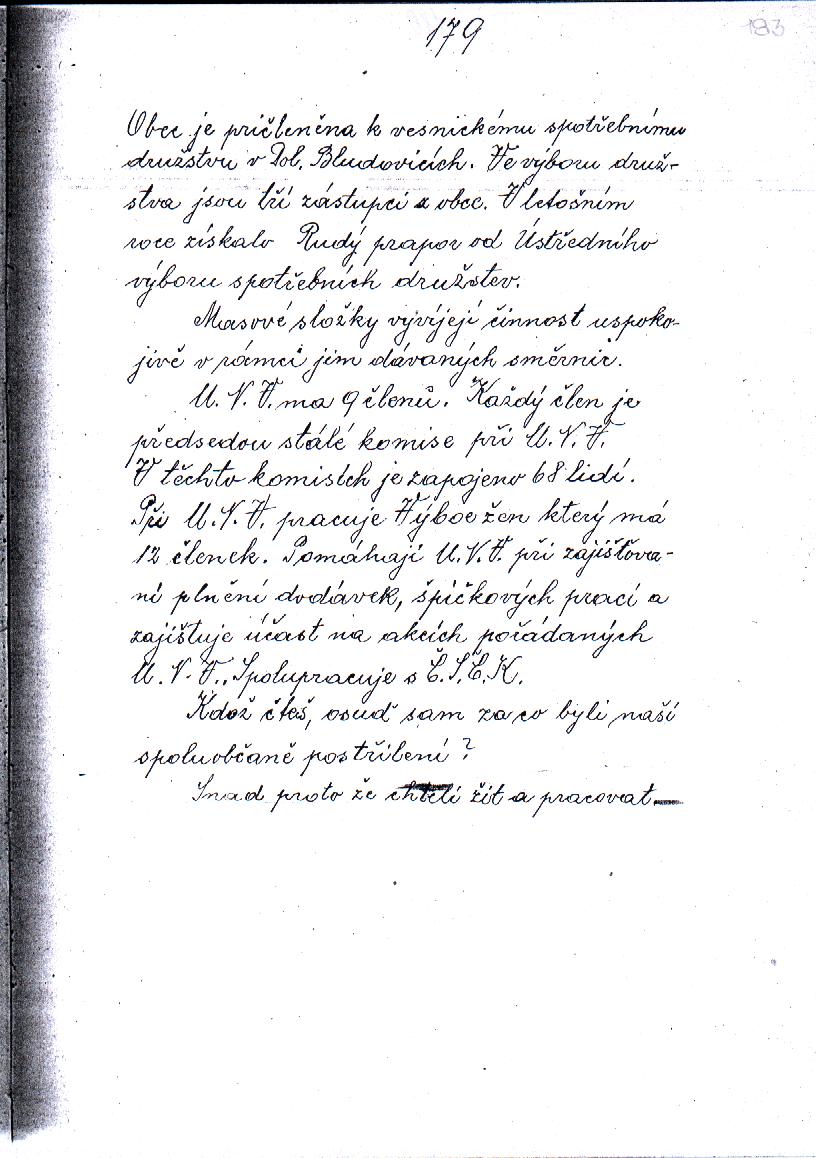 179
193
Obec je pričleněna k vesnickému spotřebnímu
družstvu v Dol. Bludovicích. Ve výboru druž-
stva jsou tří zástupci z obce. V letošním
roce získalo Rudý prapor od Ústředního
výboru spotřebních družstev.
Masové složky vyvíjejí činnost uspoko-
jivě v rámci jim dávaných směrnic.
M. N. V. ma 9 členů. Každý člen je
předsedou stálé komise při M. N. V.
V těchto komisích je zapojeno 68 lidí.
Při M. N. V. pracuje Výbor žen který má
12 členek. Pomáhají M. N. V. při zajišťova-
ní plnění dodávek, špičkových prací a
zajištuje účast na akcích pořádaných
M. N. V.. Spolupracuje s Č.S.Č.K.
Kdož čteš, osuď sam za co byli naší
spoluobčaně postřílení?
Snad proto že chtěli žít a pracovat